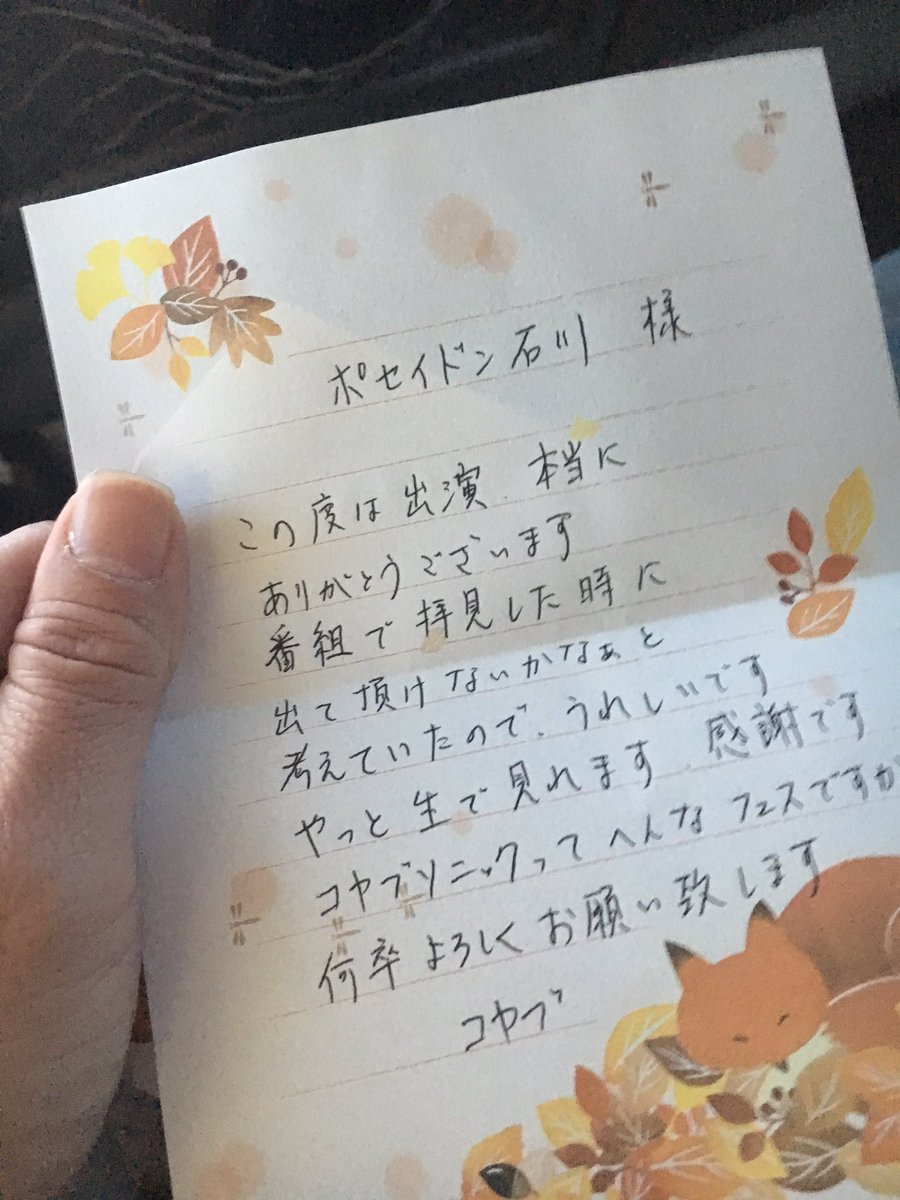 ポセイドン石川 様
この度は出演 本当に
ありがとうございます
番組で拝見した時に
出て頂けないかなぁと
考えていたので、うれしいです
やっと生で見れます 感謝です
コヤブソニックってへんなフェスですが
何卒よろしくお願い致します
コヤブ